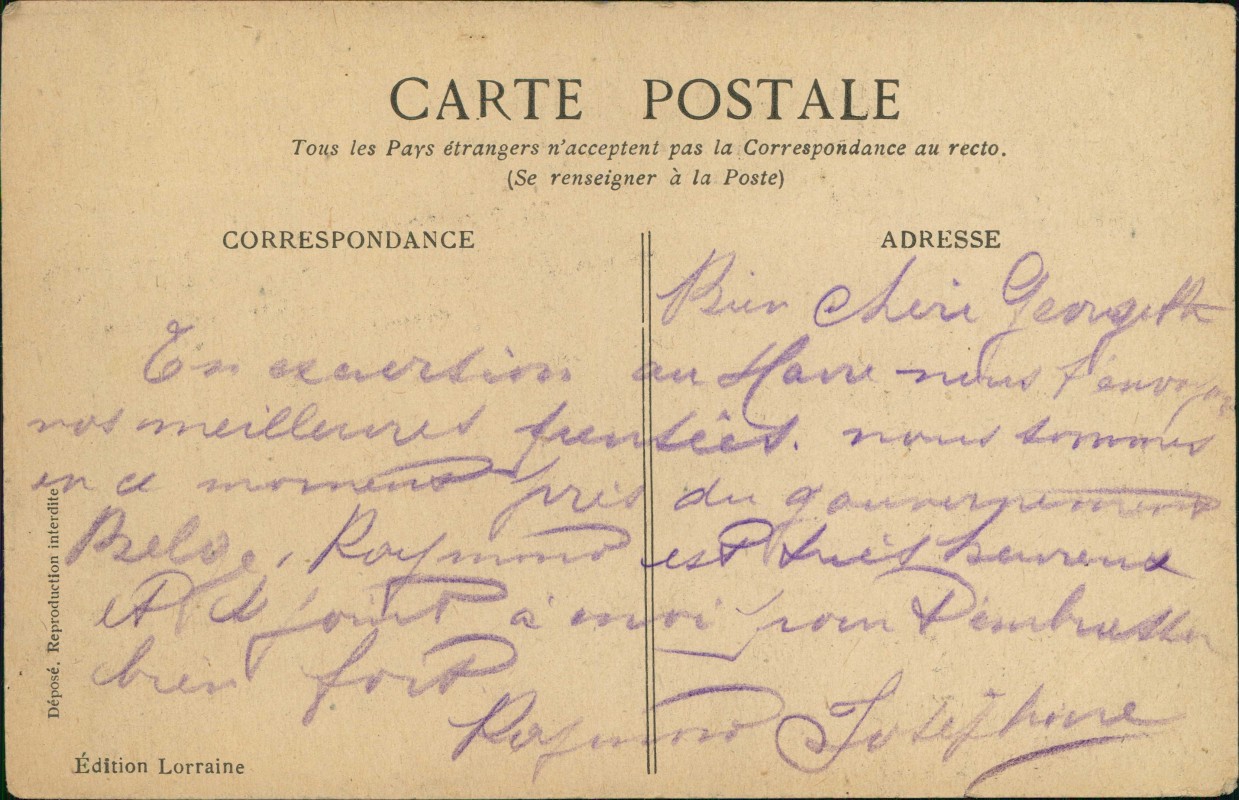 CARTE POSTALE
Tous les Pays étrangers n'acceptent pas la Correspondance au recto.
(Se renseigner à la Poste)
CORRESPONDANCE
ADRESSE
Bien chère Georgette
En excursion au Havre nous t'envoyons
nos meilleures pensées. nous sommes
en ce moment près du gouvernement
Belge, Raymond est très heureux
et se joint à moi pour t'embrasser
bien fort
Raymond Joséphine
Déposé. Reproduction interdite
Édition Lorraine